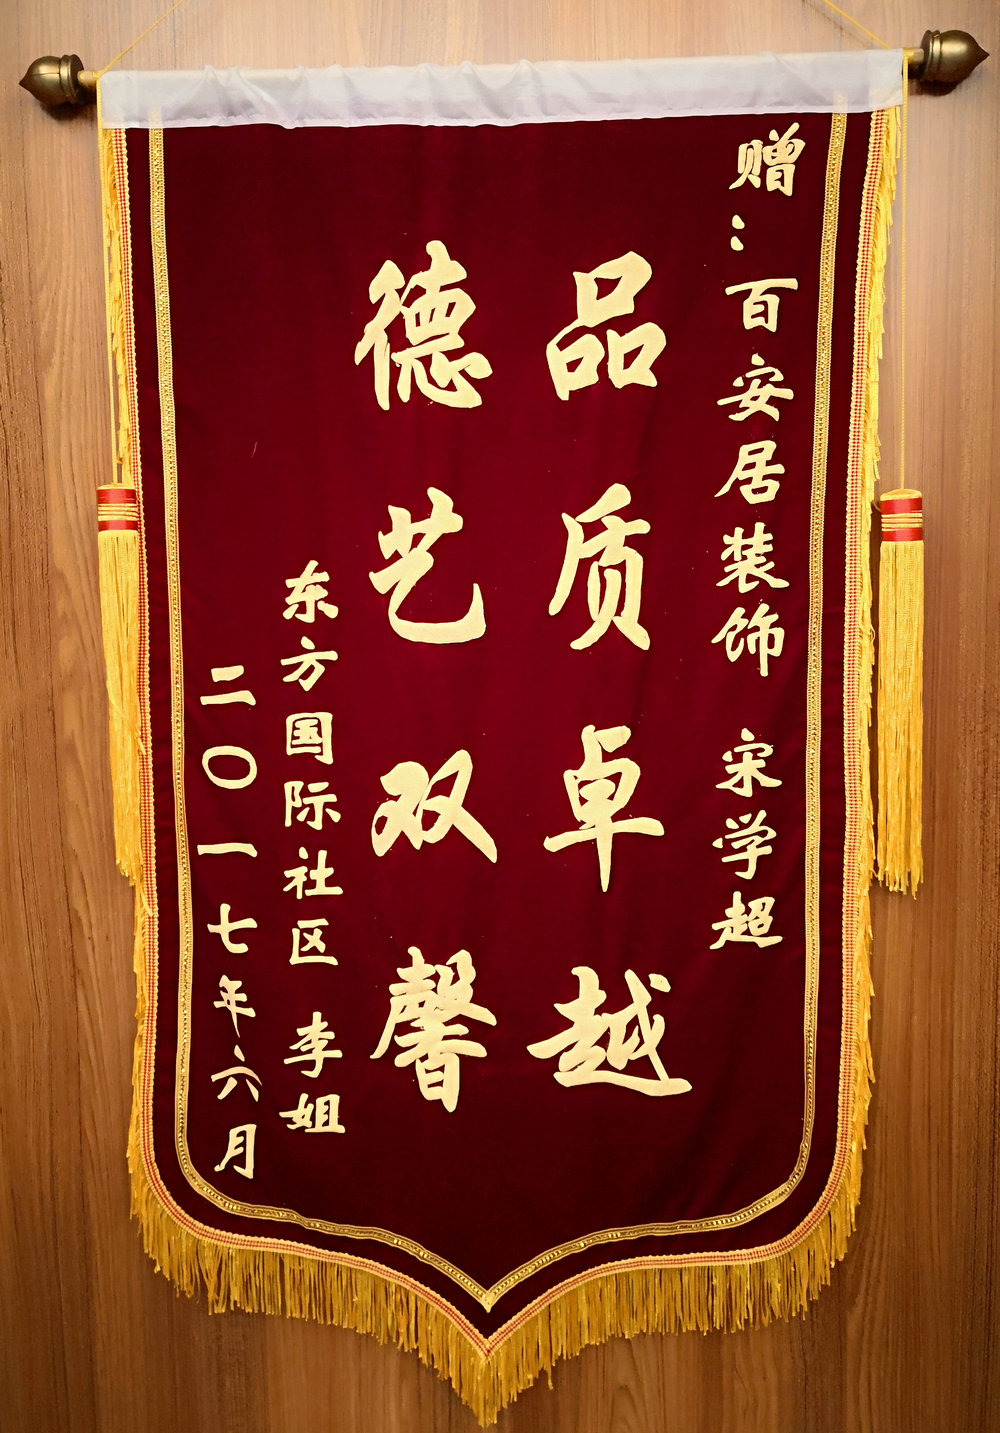 赠：百安居装饰 宋学超
品质卓越
德艺双馨
东方国际社区 李姐
二〇一七年六月